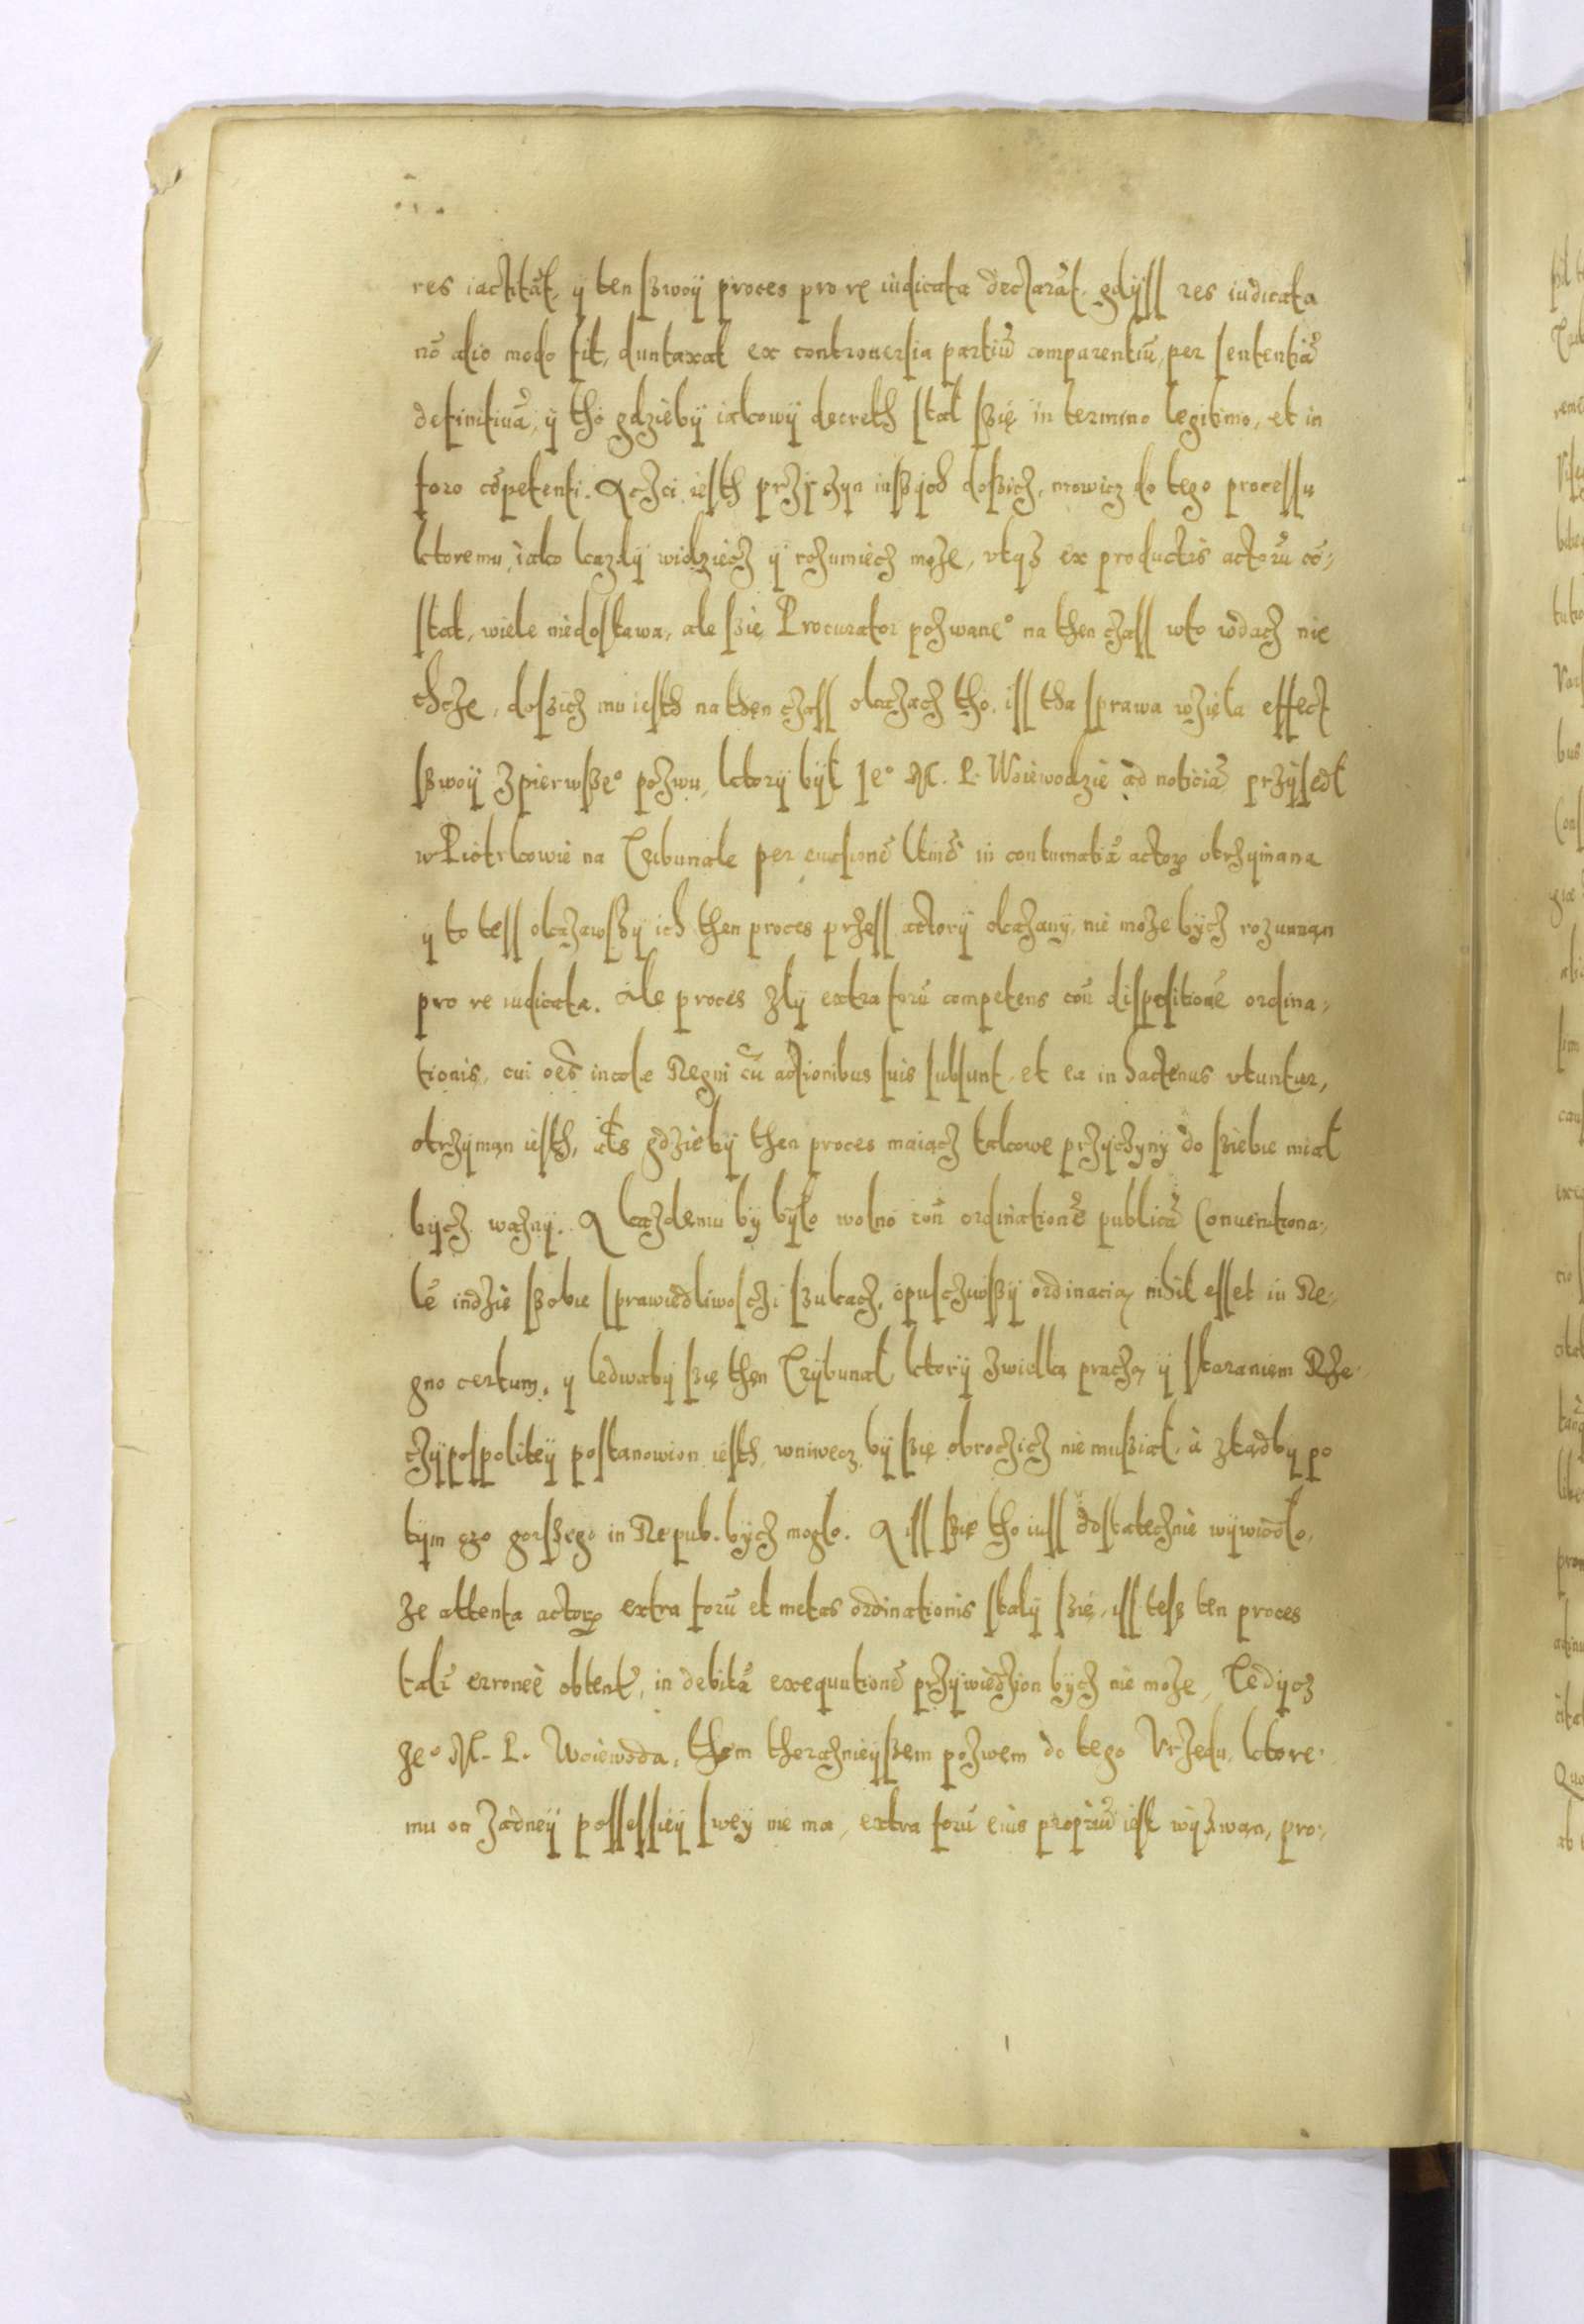 res iactitāt, ÿ ten ßwoÿ proces pro re iudicata declarāt, gdÿss res iudicata
nō alio modo fit, duntaxat ex controuersia partiū comparentiū, per sententiā
definitiuā, ÿ tho gdziebÿ iakowÿ decreth stał ßię in termino legitimo, et in
foro cōpetenti. Aczci iesth przÿczyn inßÿch doszicz, mowicz do tego processu
ktoremu, iako kazdÿ widziećz ÿ rozumiećz może, vtqз ex productis actorū cō-
stat, wiele niedostawa, ale sie Procurator pozwane° na then czass wto wdacz nie
chcze, doszicz mu iesth na then czass okazacz tho, iss tha sprawa wzięła effect
ßwoÿ z pierwsze° pozwu, ktorÿ bÿł Je° M. P. Woiewodzie ad noticiā przÿsedł
w Piotrkowie na Tribunale per euasionē in contumatiā actorꝝ otrzÿmana
ÿ to tess okazawßÿ ich then proces przess actorÿ okazanÿ, nie może bÿcz rozumian
pro re iudicata. Ale proces złÿ extra forū competens con̄ dispositionē ordina-
tionis, cui oēs incolæ Regni cū actionibus suis subsunt, et ea in hactenus vtuntur,
otrzÿman iesth, gdziebÿ then proces maiącz takowe przÿczÿnÿ do ßiebie miał
bÿcz ważnÿ. A każdemu bÿ bÿło wolno con̄ ordinationē publicā Conuentiona-
lē indzie ßobie sprawiedliwosczi ßukacz, opusczÿwßÿ ordinacią, nihil esset in Re-
gno certum, ÿ ledwabÿ się then Trÿbunał, ktorÿ zwielką praczą ÿ staraniem Rze-
czÿpospolitÿ postanowion iesth, wniwecz bÿ się obroczicz nie mußiał, a zkądbÿ po
tÿm czo gorßego in Repub. bÿcz mogło. A iss ßię tho iuss dostatecznie wÿwiodło,
ze attenta actorꝝ extra forū et metas ordinationis stałÿ ßię, iss teß ten proces
talr̄ erroneè obtent9, in debitā exequutionē przÿwiedzion bÿcz nie może, Tedÿcz
Je° M. P. Woiewoda, them theraznieÿßem pozwem do tego Vrzędu, ktore-
mu on zadneÿ possessieÿ sweÿ nie ma, extra forū eius propriū iest wÿzwan, pro-